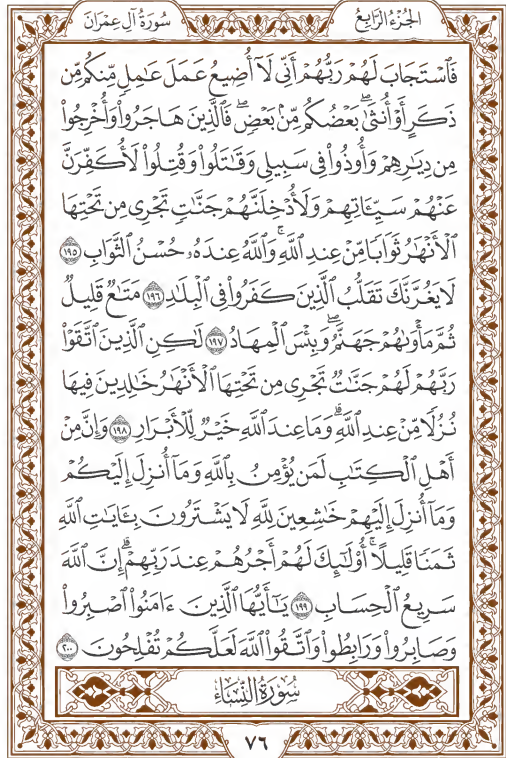 سُورَةُ آلِ عِمْرَانَ
الجُزْءُ الرَّابِعُ
فَٱسْتَجَابَ لَهُمْ رَبُّهُمْ أَنِّي لَآ أُضِيعُ عَمَلَ عَٰمِلٖ مِّنكُم مِّن
ذَكَرٍ أَوْ أُنثَىٰۖ بَعْضُكُم مِّنۢ بَعْضٖۖ فَٱلَّذِينَ هَاجَرُواْ وَأُخْرِجُواْ
مِن دِيَٰرِهِمْ وَأُوذُواْ فِي سَبِيلِي وَقَٰتَلُواْ وَقُتِلُواْ لَأُكَفِّرَنَّ
عَنْهُمْ سَيِّـَٔاتِهِمْ وَلَأُدْخِلَنَّهُمْ جَنَّٰتٖ تَجْرِي مِن تَحْتِهَا
ٱلْأَنْهَٰرُ ثَوَابٗا مِّنْ عِندِ ٱللَّهِۚ وَٱللَّهُ عِندَهُۥ حُسْنُ ٱلثَّوَابِ ١٩٥
لَا يَغُرَّنَّكَ تَقَلُّبُ ٱلَّذِينَ كَفَرُواْ فِي ٱلْبِلَٰدِ ١٩٦ مَتَٰعٞ قَلِيلٞ
ثُمَّ مَأْوَىٰهُمْ جَهَنَّمُۖ وَبِئْسَ ٱلْمِهَادُ ١٩٧ لَٰكِنِ ٱلَّذِينَ ٱتَّقَوْاْ
رَبَّهُمْ لَهُمْ جَنَّٰتٞ تَجْرِي مِن تَحْتِهَا ٱلْأَنْهَٰرُ خَٰلِدِينَ فِيهَا
نُزُلٗا مِّنْ عِندِ ٱللَّهِۗ وَمَا عِندَ ٱللَّهِ خَيْرٞ لِّلْأَبْرَارِ ١٩٨ وَإِنَّ مِنْ
أَهْلِ ٱلْكِتَٰبِ لَمَن يُؤْمِنُ بِٱللَّهِ وَمَآ أُنزِلَ إِلَيْكُمْ
وَمَآ أُنزِلَ إِلَيْهِمْ خَٰشِعِينَ لِلَّهِ لَا يَشْتَرُونَ بِـَٔايَٰتِ ٱللَّهِ
ثَمَنٗا قَلِيلًاۚ أُوْلَٰٓئِكَ لَهُمْ أَجْرُهُمْ عِندَ رَبِّهِمْۗ إِنَّ ٱللَّهَ
سَرِيعُ ٱلْحِسَابِ ١٩٩ يَٰٓأَيُّهَا ٱلَّذِينَ ءَامَنُواْ ٱصْبِرُواْ
وَصَابِرُواْ وَرَابِطُواْ وَٱتَّقُواْ ٱللَّهَ لَعَلَّكُمْ تُفْلِحُونَ ٢٠٠
سُورَةُ النِّسَاءِ
٧٦